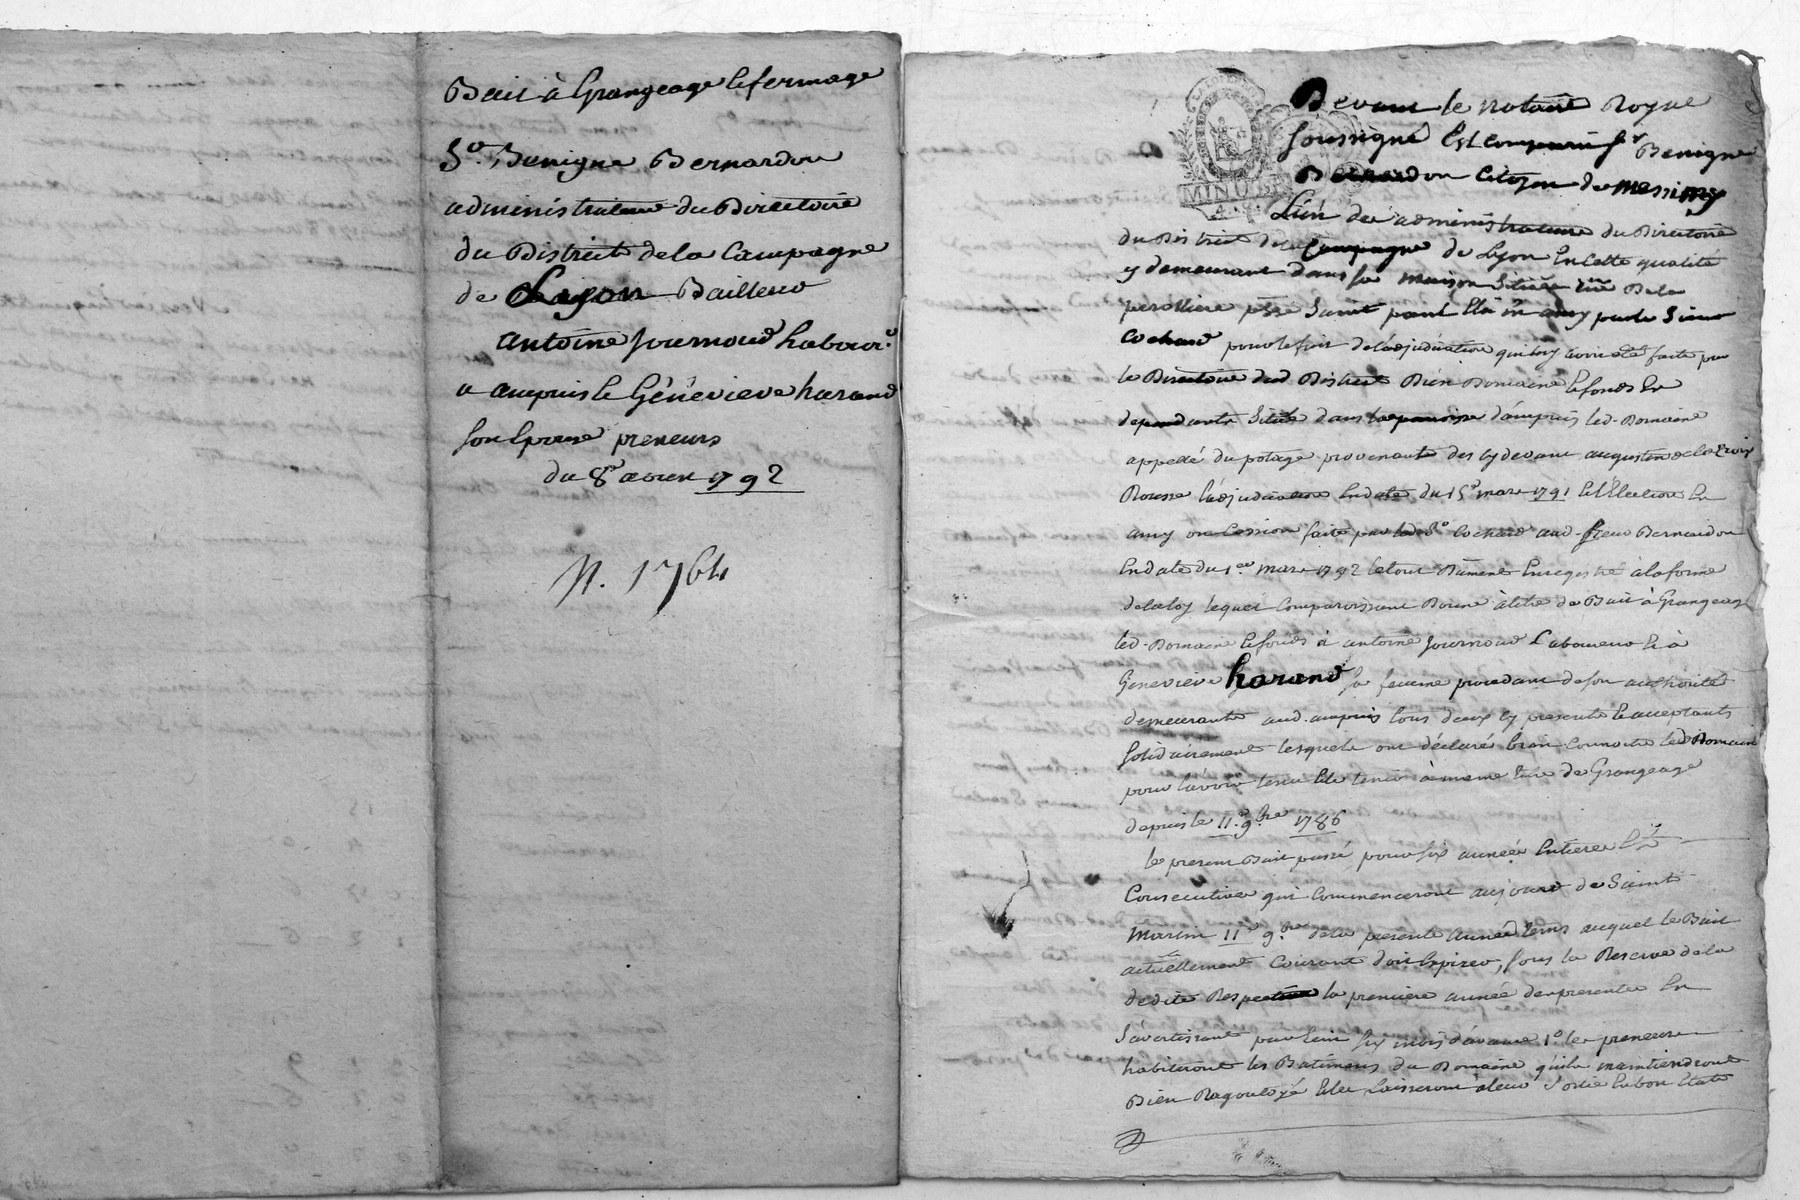 Bail à Grangeage & fermage
Sr. Benigne Bernardon
administrateur du Directoire
du District de la Campagne
de Lyon Bailleur
antoine Journoud labour.r
a ampuis & Généviève harand
son Epouse preneurs
du 8e avril 1792
N. 1764
Devant le notaire Royal
soussigné Est comparu sr. Benigne
Bernardon Citoyen de messimy
L'un des administrateurs du Directoire
du District de la Campagne de Lyon En cette qualité
y demeurant dans sa maison Située rüe De la
perolliere psse Saint paul Elû in amy par le Sieur
Cochard pour le fait de l'adjudication qui luy avoit été faite par
le Directoire dud District D'un Domaine & fonds En
dependants Situés dans la paroisse d'ampuis led. Domaine
appellé du potage provenant des cy devant augustins de la Croix
Rousse l'adjudication En date du 15e mars 1791 & l'Election En
amy ou Cession faite par led Sr. Cochard aud. sieur Bernardon
En date du 1er mars 1792 le tout Dûment Enregistré a la forme
de la loy lequel Comparoissant Donne à titre de Bail à Grangeage
led. Domaine & fonds à antoine Journoud Laboureur & à
Genevieve harand sa femme procedant de son authorité
demeurants aud. ampuis tous deux cy presents & acceptants
solidairement lesquels ont déclaré bien Connoitre led Domaine
pour l'avoir tenu & le tenir à même titre de Grangeage
depuis le 11e 9bre 1786
le present Bail passé pour six années Entieres &
Consecutives qui Commenceront au jour de Saint
Martin 11e 9bre de la presente année tems auquel le Bail
actuellement Courant doit Expirer, sous la Reserve de la
dedite Respective la premiere année des presentes En
s'avertissant par Ecrit six mois d'avance 1o les preneurs
habiteront les Batimens du Domaine qu'ils maintiendront
Bien & les laisseront à leur Sortie En bon Etat